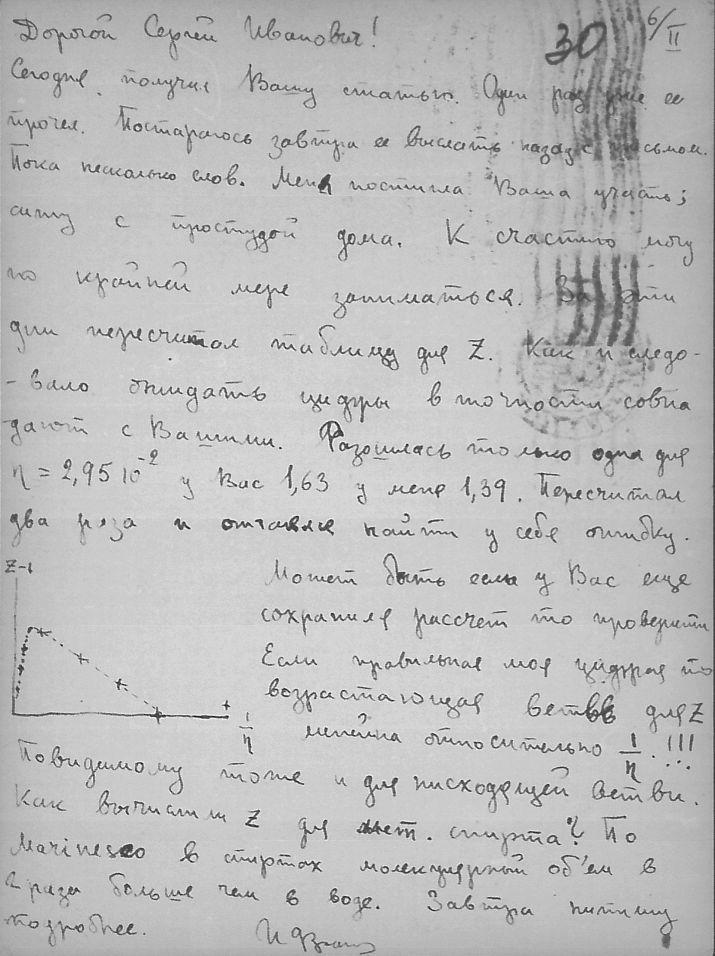 Дорогой Сергей Иванович!
30
6/II
Сегодня получил Вашу статью. Один раз уже ее
прочел. Постараюсь завтра ее выслать назад с письмом.
Пока несколько слов. Меня постигла Ваша участь;
сижу с простудой дома. К счастью могу
по крайней мере заниматься. За эти
дни пересчитал таблицу для Z. Как и следо-
-вало ожидать цифры в точности совпа
дают с Вашими. Разошлась только одна для
η = 2,95 10⁻² у Вас 1,63 у меня 1,39. Пересчитал
два раза и отчаялся найти у себя ошибку.
Z-1
Может быть если у Вас еще
сохранился рассчет то проверите
Если правильная моя цифра то
возрастающая ветвь для Z
линейна относительно 1/η.!!!
1/η
Повидимому тоже и для нисходящей ветви.
Как вычислили Z для мет. спирта? По
Marinesco в спиртах молекулярный об'ем в
2 раза больше чем в воде. Завтра напишу
подробнее.